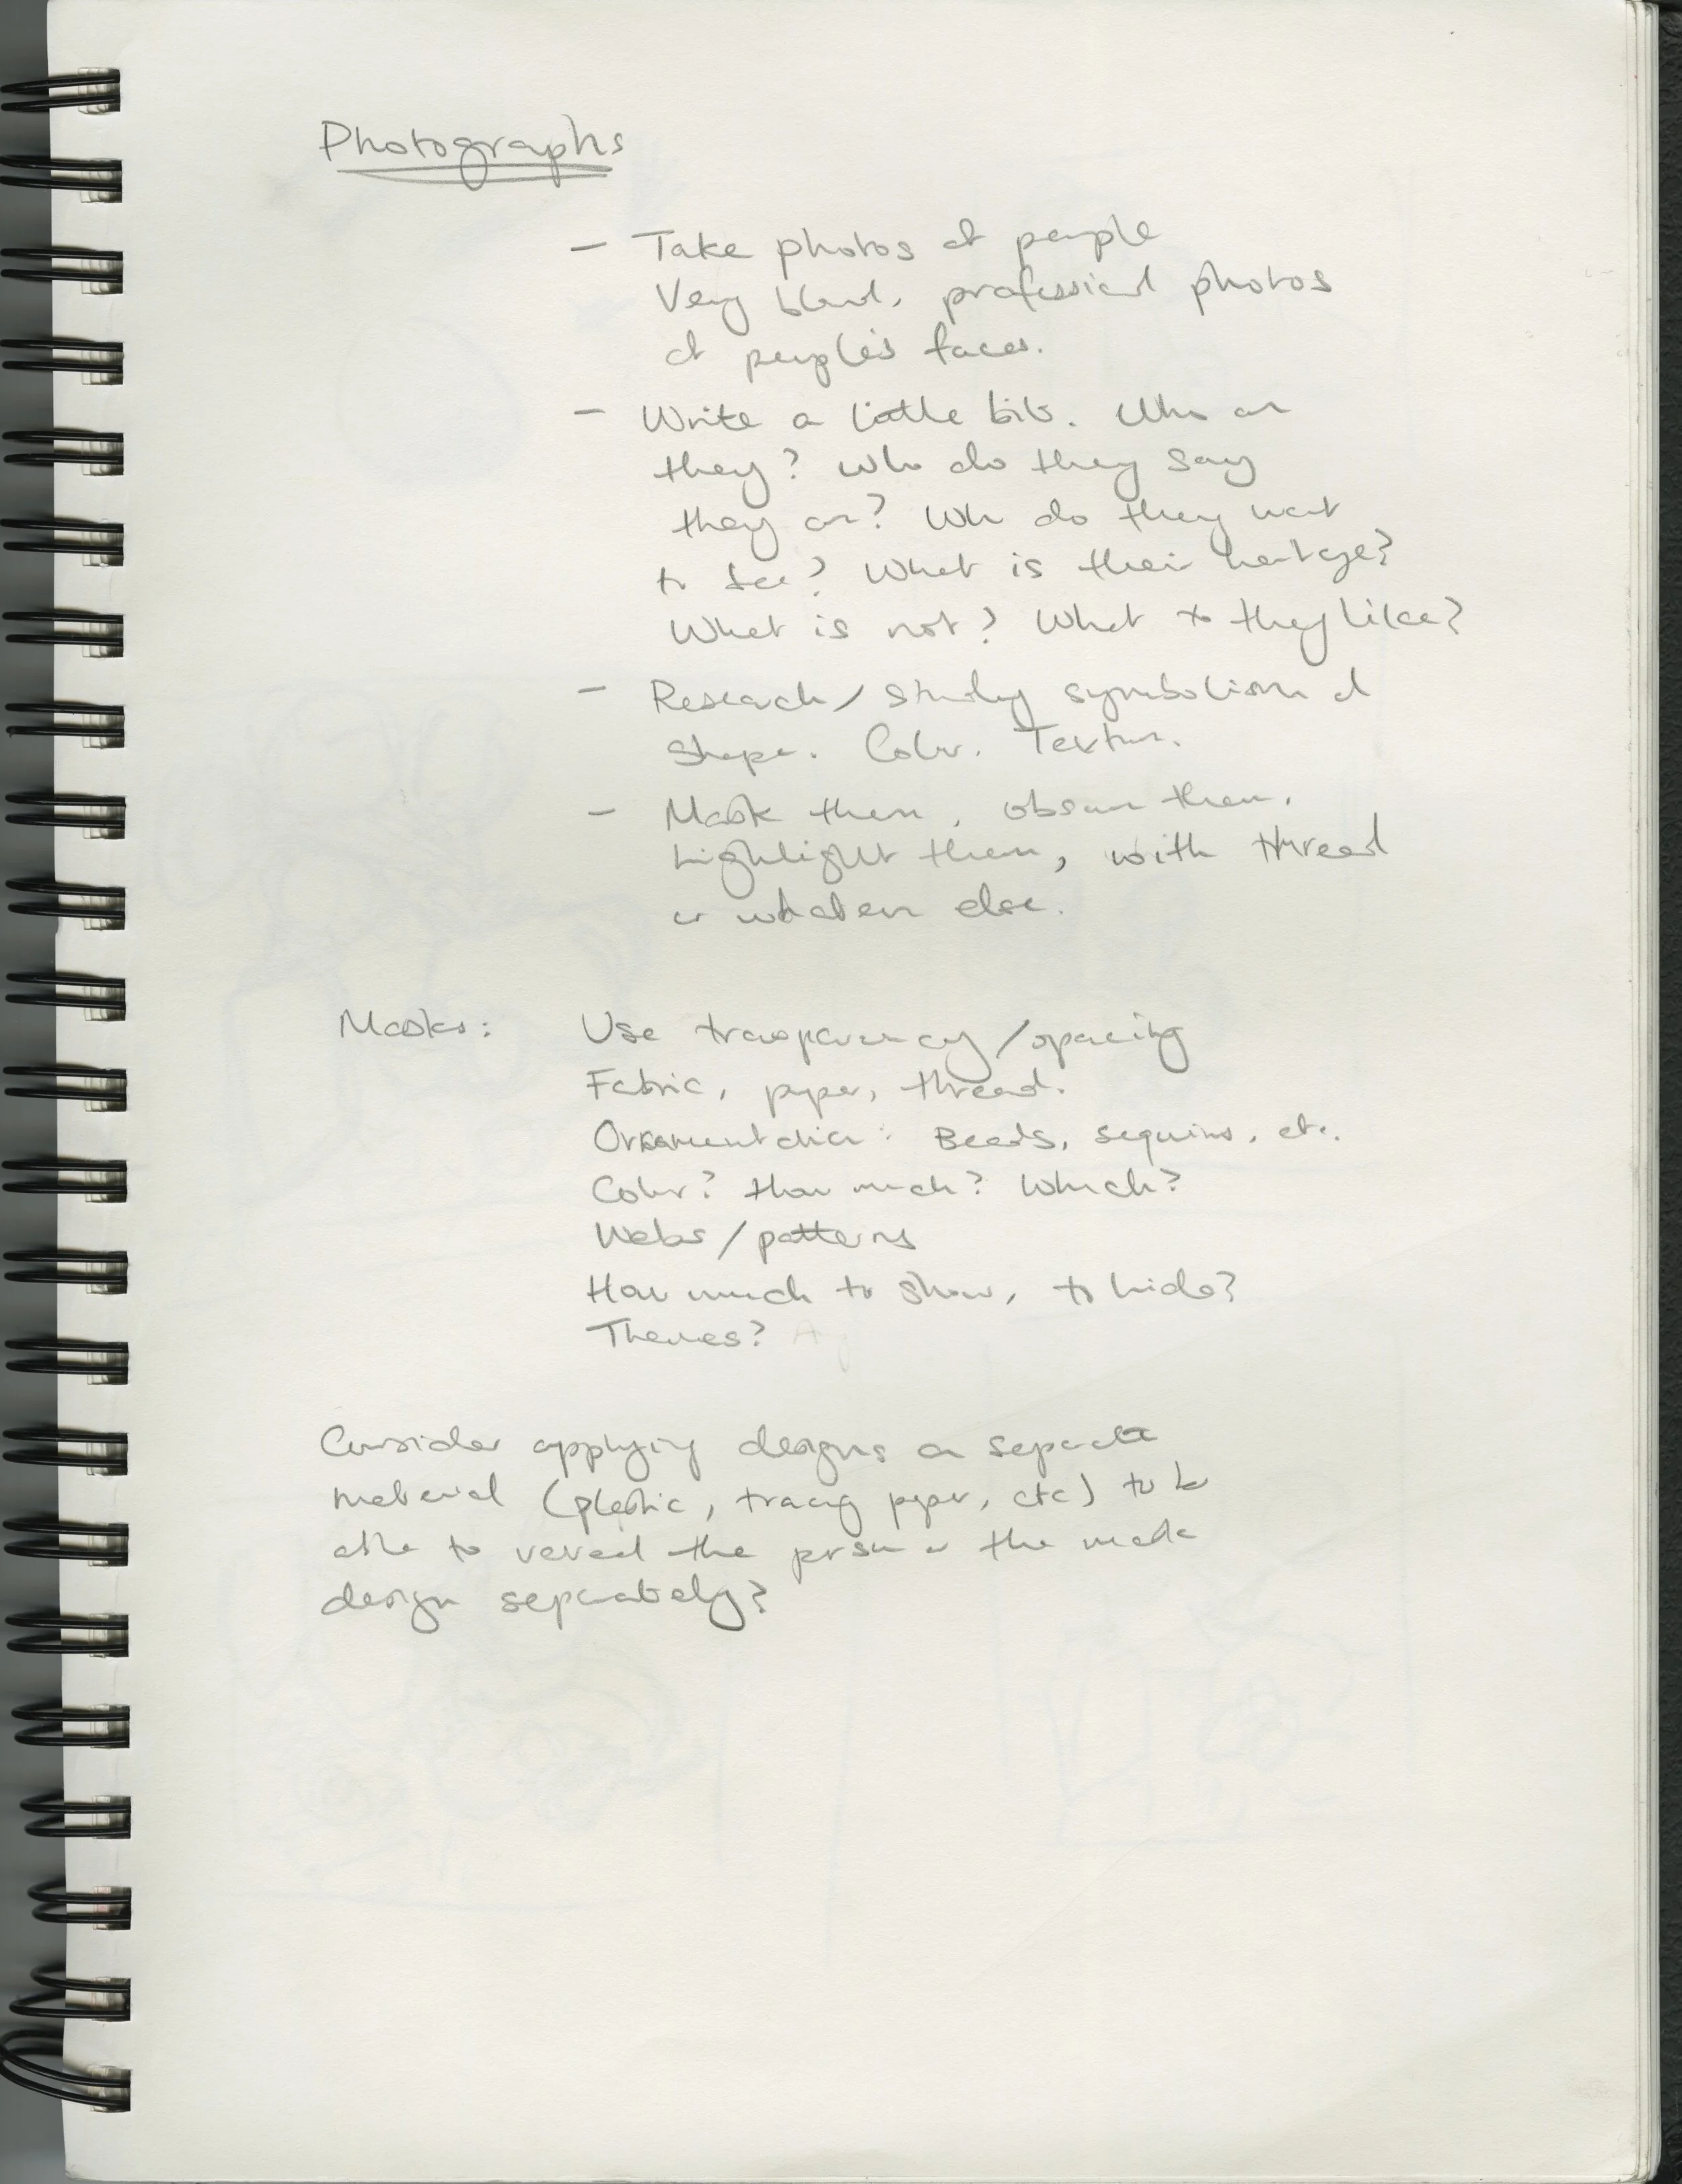 Photographs
- Take photos of people
Very bland, professional photos
of people's faces.
- Write a little bit. Who are
they? Who do they say
they are? Who do they want
to be? What is their heritage?
What is not? What do they like?
- Research/study symbolism of
shape. Color. Texture.
- Mask them, obscure them,
highlight them, with thread
or whatever else.
Masks: Use transparency/spacing
Fabric, paper, thread.
Ornamentation: Beads, sequins, etc.
Color? How much? Which?
Webs/patterns
How much to show, to hide?
Themes?
Consider applying designs on separate
material (plastic, tracing paper, etc) to be
able to reveal the person or the
design separately?